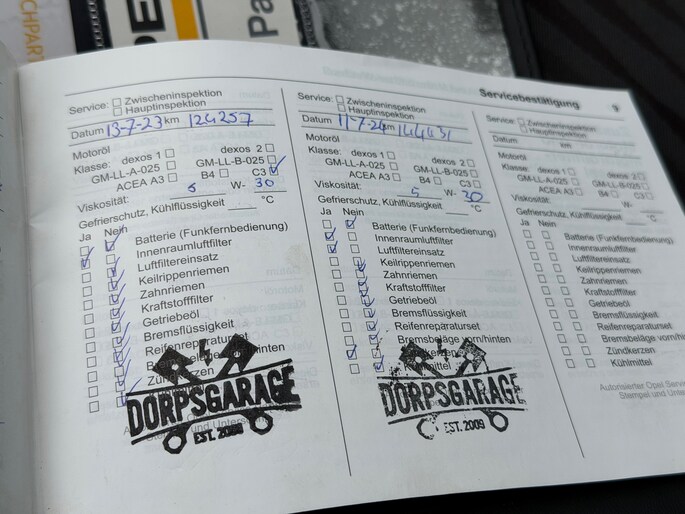 CHPART
PE
Pa
Servicebestätigung 9
Service: Zwischeninspektion
Hauptinspektion
Datum 13-7-23 km 124257
Motoröl
Klasse: dexos 1 dexos 2
GM-LL-A-025 GM-LL-B-025
ACEA A3 B4 C3
Viskosität: 5 W- 30
Gefrierschutz, Kühlflüssigkeit °C
Ja Nein
Batterie (Funkfernbedienung)
Innenraumluftfilter
Luftfiltereinsatz
Keilrippenriemen
Zahnriemen
Kraftstofffilter
Getriebeöl
Bremsflüssigkeit
Reifenreparaturset
hinten
Zündkerzen
DORPSGARAGE
EST. 2009
Service: Zwischeninspektion
Hauptinspektion
Datum 11-7-24 km 144431
Motoröl
Klasse: dexos 1 dexos 2
GM-LL-A-025 GM-LL-B-025
ACEA A3 B4 C3
Viskosität: 5 W- 30
Gefrierschutz, Kühlflüssigkeit °C
Ja Nein
Batterie (Funkfernbedienung)
Innenraumluftfilter
Luftfiltereinsatz
Keilrippenriemen
Zahnriemen
Kraftstofffilter
Getriebeöl
Bremsflüssigkeit
Reifenreparaturset
Bremsbeläge vorn/hinten
DORPSGARAGE
EST. 2009
Service: Zwischeninspektion
Hauptinspektion
Datum km
Motoröl
Klasse: dexos 1 dexos 2
GM-LL-A-025 GM-LL-B-025
ACEA A3 B4 C3
Viskosität: W-
Gefrierschutz, Kühlflüssigkeit °C
Ja Nein
Batterie (Funkfernbedienung)
Innenraumluftfilter
Luftfiltereinsatz
Keilrippenriemen
Zahnriemen
Kraftstofffilter
Getriebeöl
Bremsflüssigkeit
Reifenreparaturset
Bremsbeläge vorn/hin
Zündkerzen
Kühlmittel
Autorisierter Opel Serv
Stempel und Unters